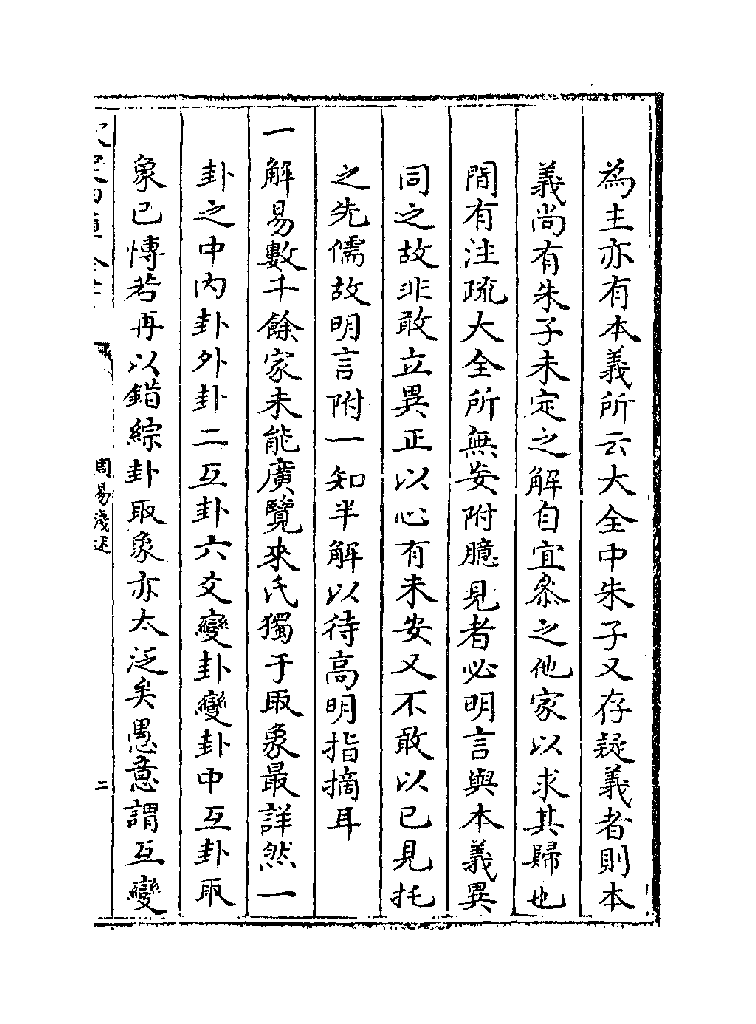 為主亦有本義所云大全中朱子又存疑義者則本
義尚有朱子未定之解自宜叅之他家以求其歸也
間有注疏大全所無妄附臆見者必明言與本義異
同之故非敢立異正以心有未安又不敢以已見托
之先儒故明言附一知半解以待高明指摘耳
一解易數千餘家未能廣覽來氏獨于取象最詳然一
卦之中内卦外卦二互卦六爻變卦變卦中互卦取
象已慱若再以錯綜卦取象亦太泛矣愚意謂互變
周易淺述
二